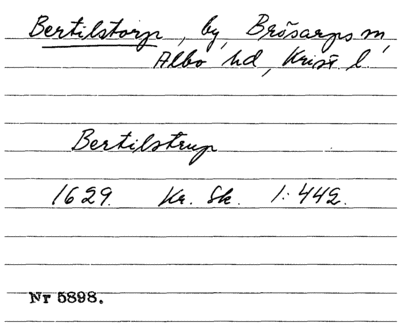 Bertilstorp, by, Brösarps sn,
Albo hd, Krist l
Bertilstrup
1629. Kr. Sk. 1:442.
Nr 5898.